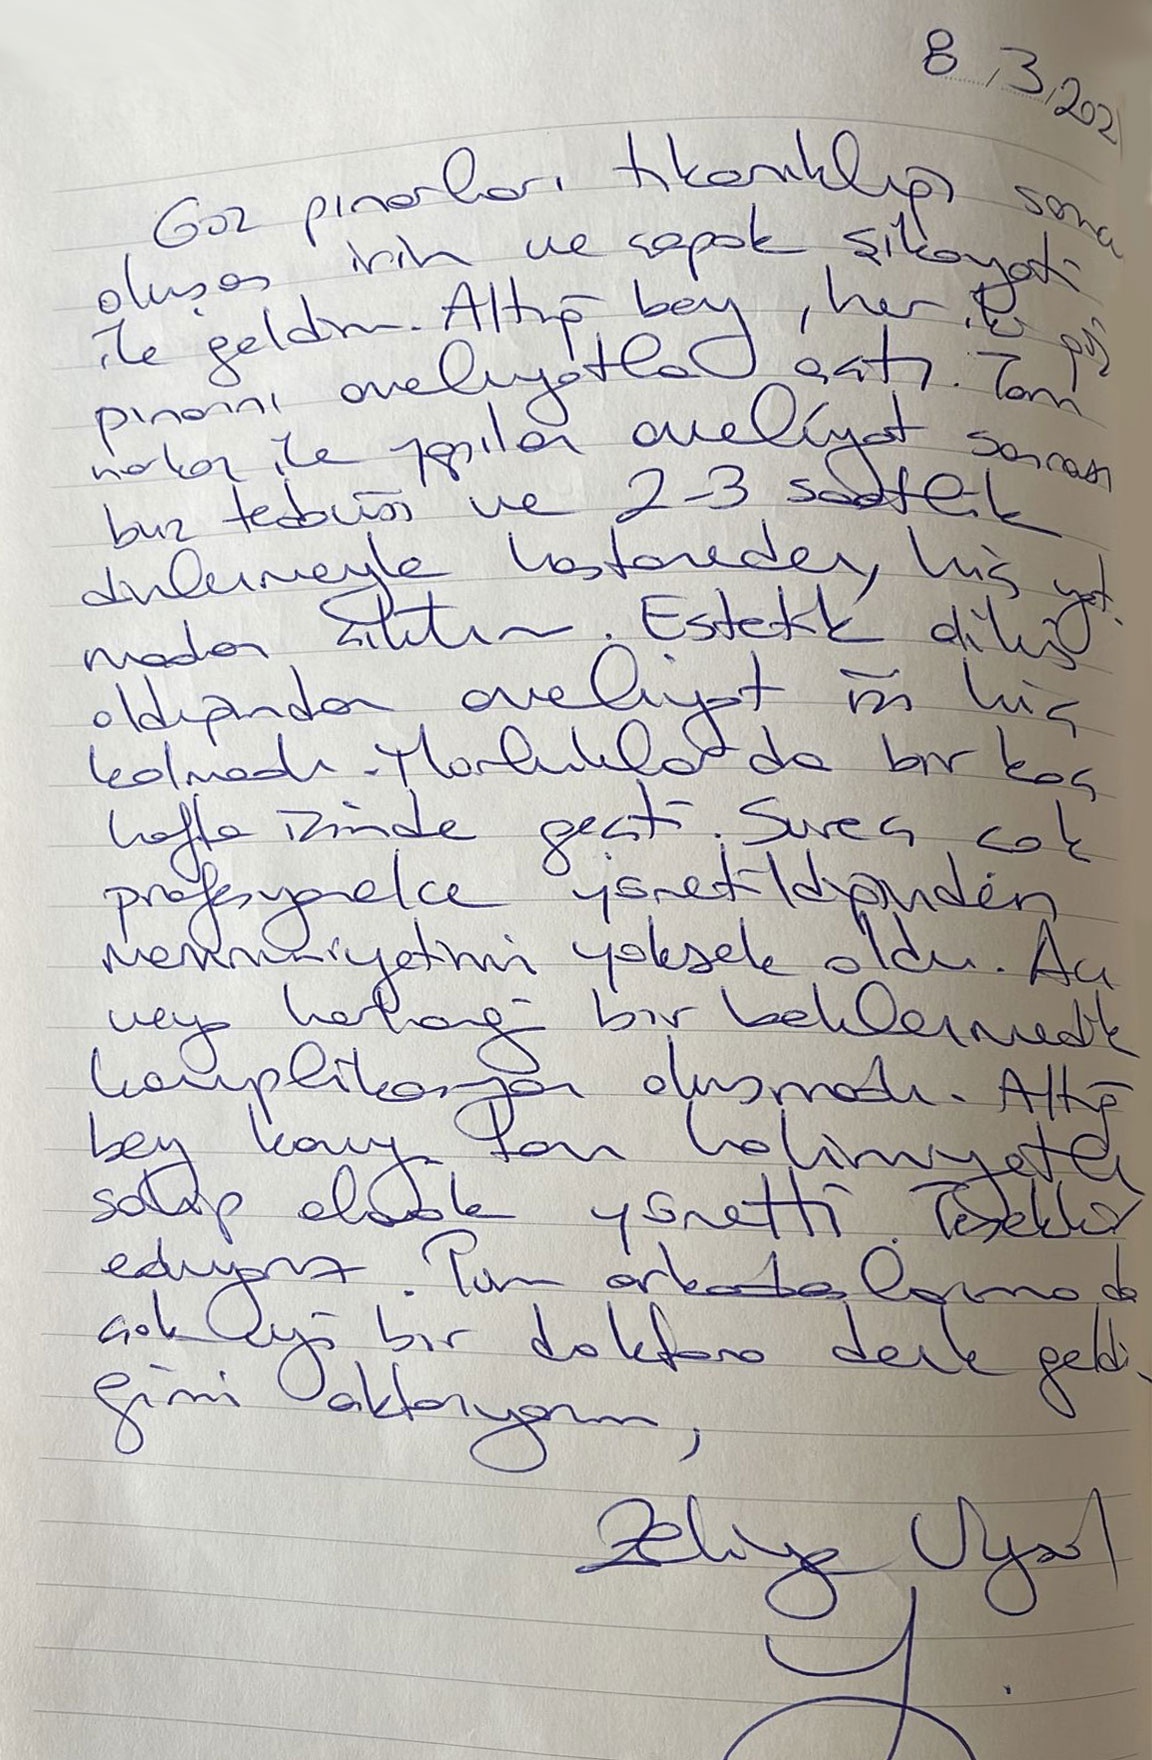 8.3.202
Göz pınarları tıkanıklığı sonu
oluşan irin ve çapak şikayeti
ile geldim. Altuğ bey, her iki göz
pınarını ameliyatla açtı. Tam
narkoz ile yapılan ameliyat sonrası
buz tedavisi ve 2-3 saatlik
dinlenmeyle hastaneden, hiç yat
madan çıktım. Estetik dikiş
olduğundan ameliyat izi hiç
kalmadı. Morluklar da bir kaç
hafta içinde geçti. Süreç çok
profesyonelce yönetildiğinden
memnuniyetimi yüksek oldu. Acı
veya herhangi bir beklenmedik
komplikasyon oluşmadı. Altuğ
bey konuya tam hakimiyete
sahip olarak yönetti. Teşekkür
ediyoruz. Tüm arkadaşlarıma da
çok iyi bir doktora denk geldi
ğimi aktarıyorum,
Zekiye Uysal